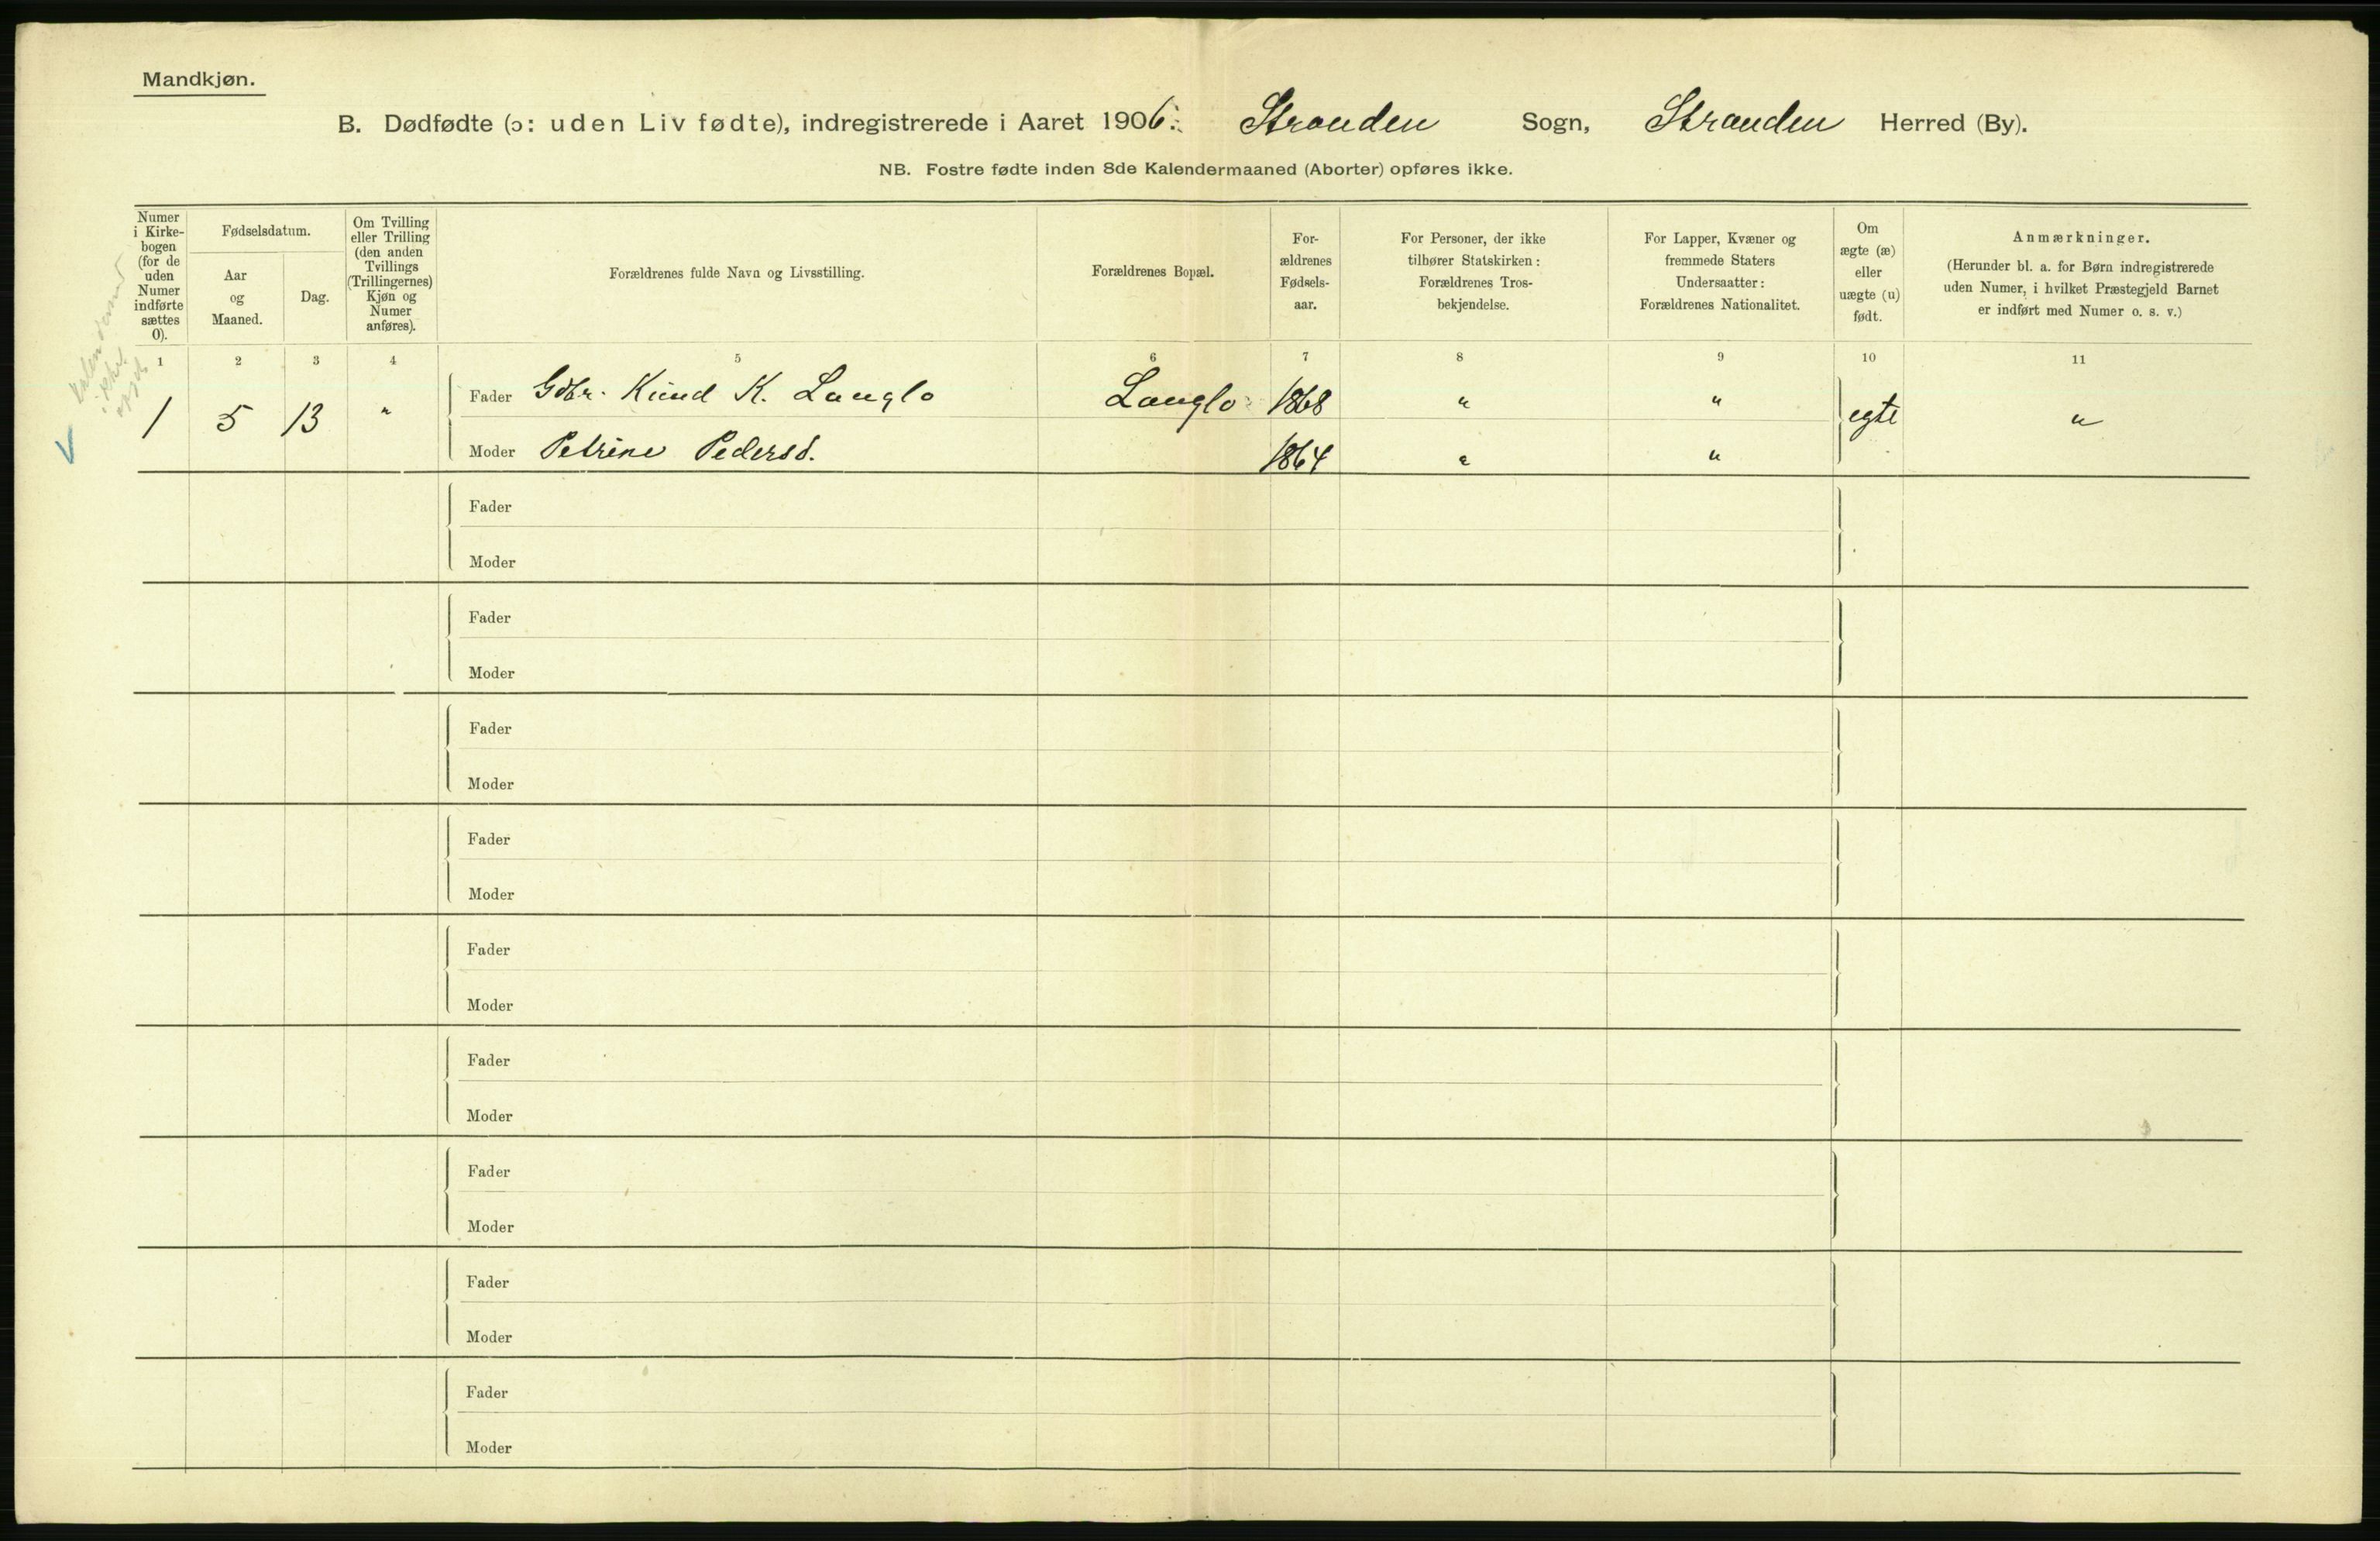 Mandkjøn.
B. Dødfødte (ɔ: uden Liv fødte), indregistrerede i Aaret 1906. Stranden Sogn, Stranden Herred (By).
NB. Fostre fødte inden 8de Kalendermaaned (Aborter) opføres ikke.
Numer
i Kirke-
bogen
(for de
uden
Numer
indførte
sættes
0).
Fødselsdatum.
Aar
og
Maaned.
Dag.
Om Tvilling
eller Trilling
(den anden
Tvillings
(Trillingernes)
Kjøn og
Numer
anføres).
Forældrenes fulde Navn og Livsstilling.
Forældrenes Bopæl.
For-
ældrenes
Fødsels-
aar.
For Personer, der ikke
tilhører Statskirken:
Forældrenes Tros-
bekjendelse.
For Lapper, Kvæner og
fremmede Staters
Undersaatter:
Forældrenes Nationalitet.
Om
ægte (æ)
eller
uægte (u)
født.
Anmærkninger.
(Herunder bl. a. for Børn indregistrerede
uden Numer, i hvilket Præstegjeld Barnet
er indført med Numer o. s. v.)
1 2 3 4 5 6 7 8 9 10 11
1 5 13 " Fader Gdbr. Knud K. Langlo Langlo 1868 " " egte "
Moder Petrine Pedersd. 1864 " "
Fader
Moder
Fader
Moder
Fader
Moder
Fader
Moder
Fader
Moder
Fader
Moder
Fader
Moder
Fader
Moder
Fader
Moder